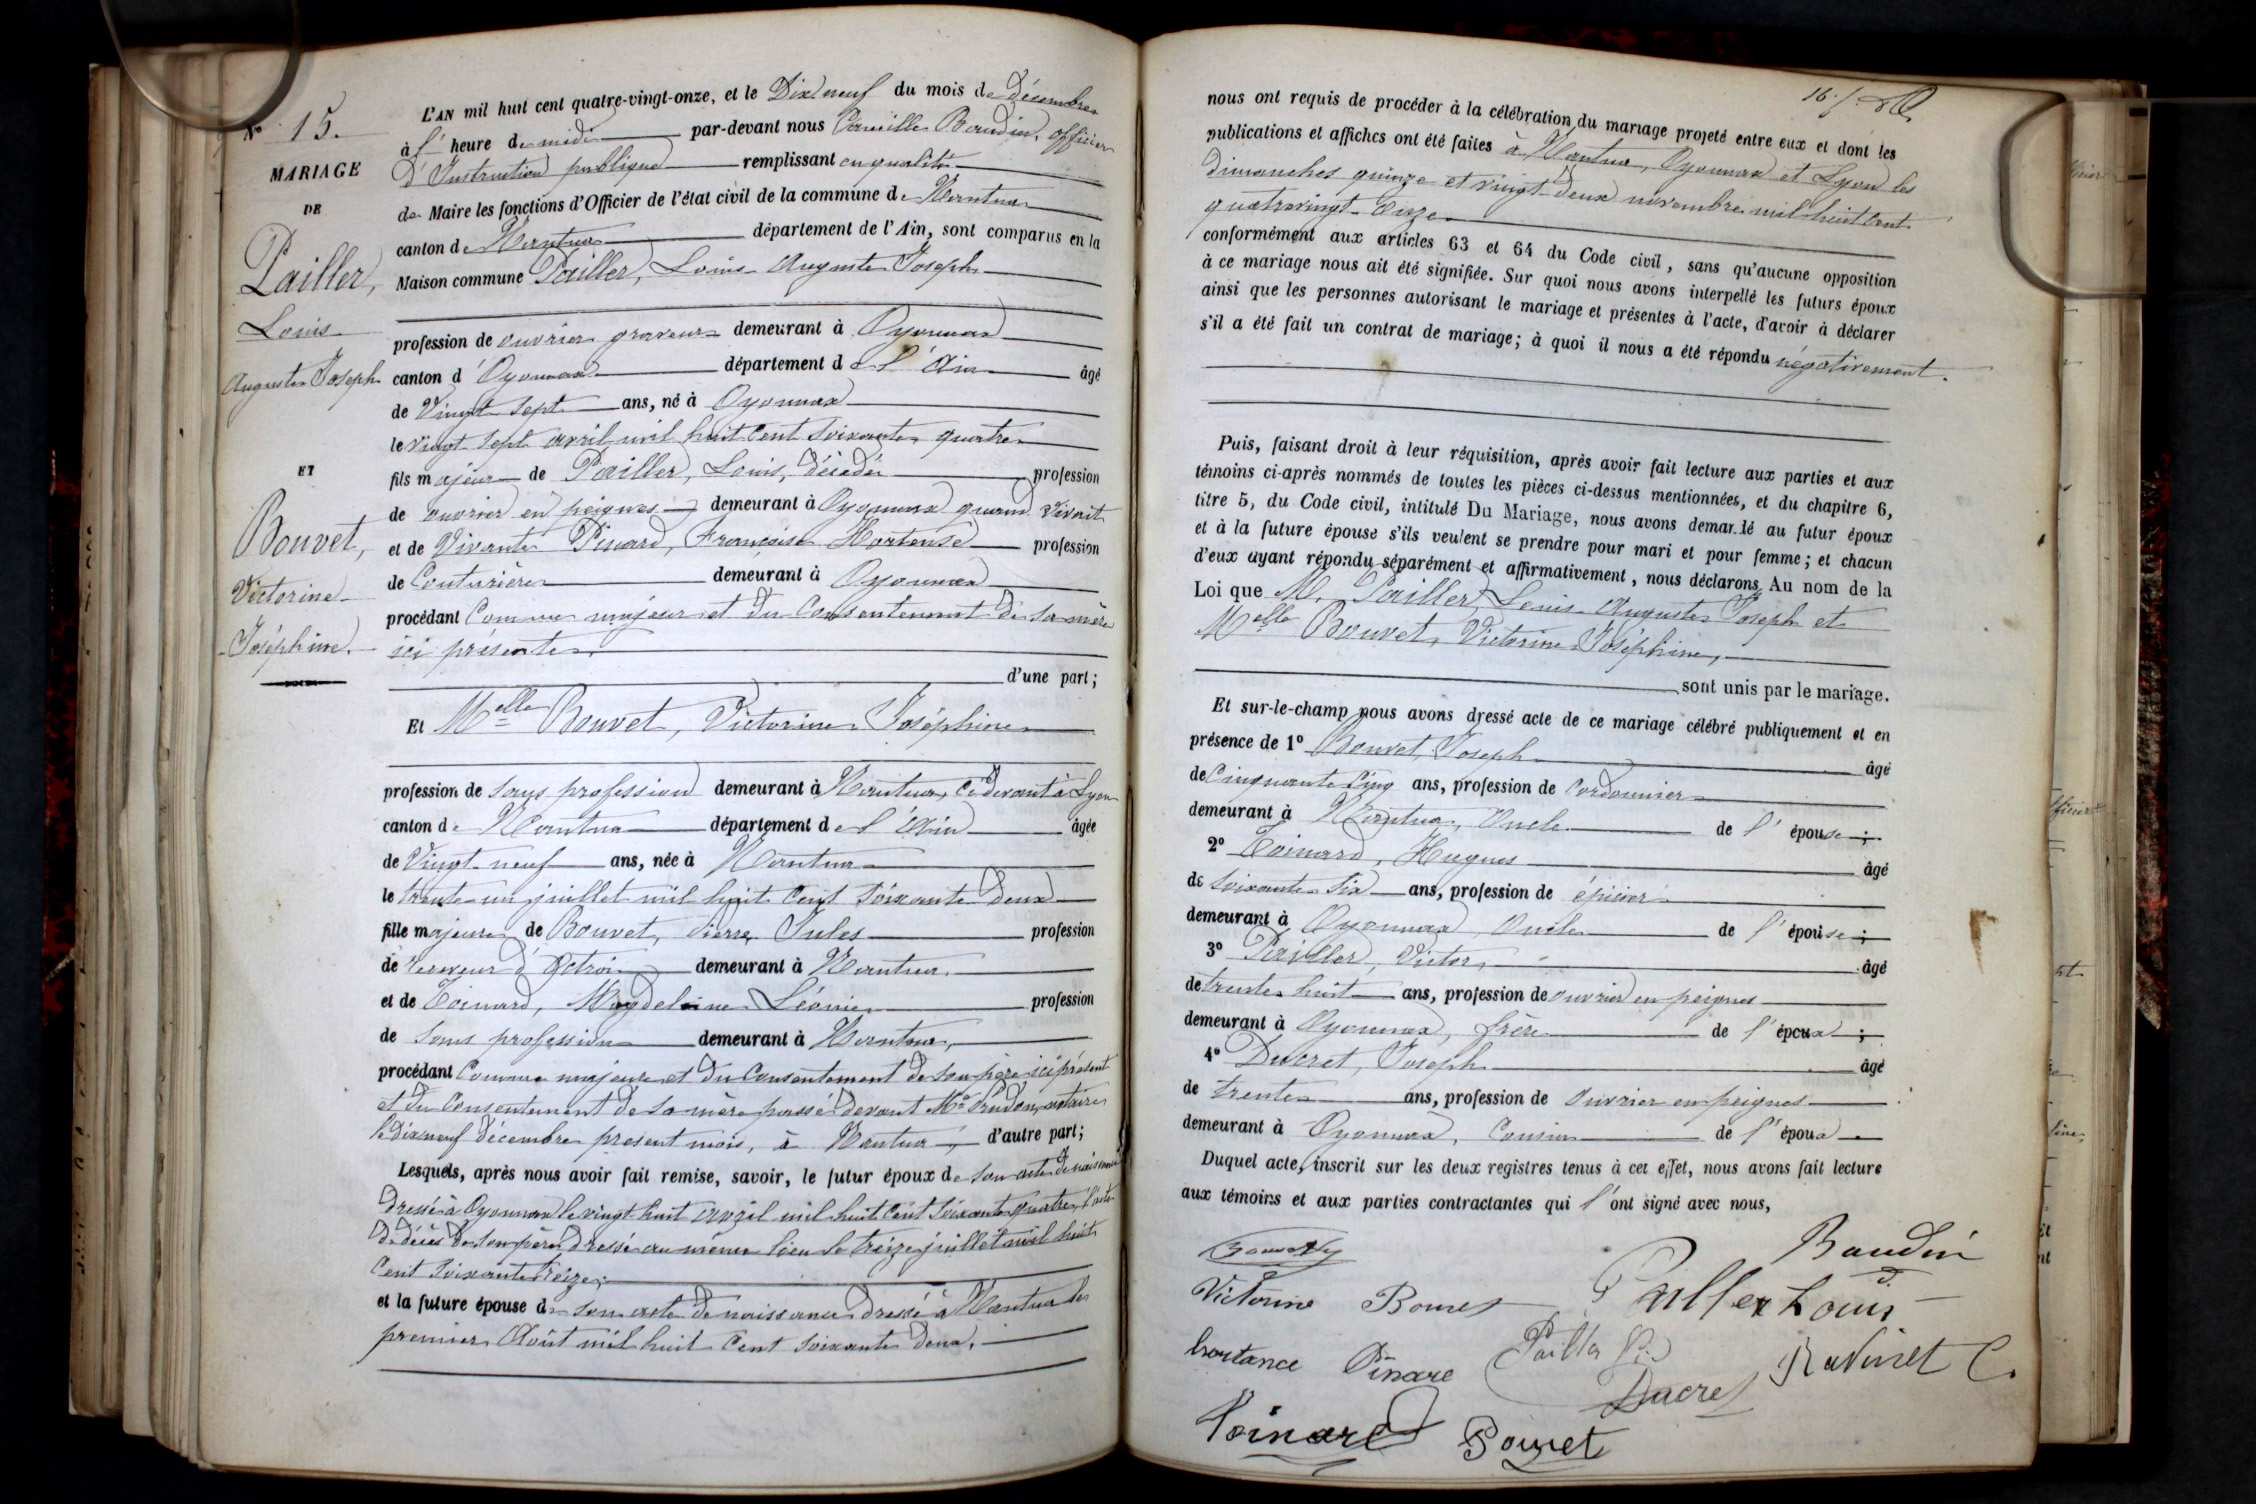 N° 15.
MARIAGE
DE
Pailler,
Louis
Auguste Joseph
ET
Bouvet,
Victorine
Joséphine.
L'AN mil huit cent quatre-vingt-onze, et le Dix neuf du mois de décembre
à l' heure de midi par-devant nous Camille Baudin, officier
d'Instruction publique remplissant en qualité
de Maire les fonctions d'Officier de l'état civil de la commune de Nantua
canton de Nantua département de l'Ain, sont comparus en la
Maison commune Pailler, Louis Auguste Joseph
profession de ouvrier graveur demeurant à Oyonnax
canton d'Oyonnax département de l'Ain âgé
de Vingt sept ans, né à Oyonnax
le vingt sept avril mil huit cent soixante quatre
fils majeur de Pailler, Louis, décédé profession
de ouvrier en peignes demeurant à Oyonnax quand vivait
et de Vivante Pinard, Françoise Hortense profession
de Couturière demeurant à Oyonnax
procédant Comme majeur et du Consentement de sa mère
ici présente.
d'une part;
Et Melle Bouvet, Victorine Joséphine
profession de sans profession demeurant à Nantua, Cidevant à Lyon
canton de Nantua département de l'Ain âgée
de Vingt neuf ans, née à Nantua
le trente un juillet mil huit Cent soixante deux
fille majeure de Bouvet, Pierre Jules profession
de receveur d'Octroi demeurant à Nantua.
et de Toinard, Magdeleine Léonie profession
de sans profession demeurant à Nantua,
procédant Comme majeure et du Consentement de son père ici présent
et du Consentement de sa mère passé devant Me Prudon, notaire
le dix neuf décembre présent mois, à Nantua, d'autre part;
Lesquels, après nous avoir fait remise, savoir, le futur époux de son acte de naissance
dressé à Oyonnax le vingt huit avril mil huit Cent soixante quatre, l'acte
de décès de son père, dressé au même lieu le treize juillet mil huit
Cent soixante treize;
et la future épouse de son acte de naissance dressé à Nantua le
premier Août mil huit Cent soixante deux.
nous ont requis de procéder à la célébration du mariage projeté entre eux et dont les
publications et affiches ont été faites à Nantua, Oyonnax et Lyon les
dimanches quinze et vingt-deux novembre mil huit Cent
quatrevingt-Onze
conformément aux articles 63 et 64 du Code civil, sans qu'aucune opposition
à ce mariage nous ait été signifiée. Sur quoi nous avons interpellé les futurs époux
ainsi que les personnes autorisant le mariage et présentes à l'acte, d'avoir à déclarer
s'il a été fait un contrat de mariage; à quoi il nous a été répondu négativement.
Puis, faisant droit à leur réquisition, après avoir fait lecture aux parties et aux
témoins ci-après nommés de toutes les pièces ci-dessus mentionnées, et du chapitre 6,
titre 5, du Code civil, intitulé Du Mariage, nous avons demandé au futur époux
et à la future épouse s'ils veulent se prendre pour mari et pour femme; et chacun
d'eux ayant répondu séparément et affirmativement, nous déclarons, Au nom de la
Loi que M. Pailler, Louis Auguste Joseph et
Melle Bouvet, Victorine Joséphine,
sont unis par le mariage.
Et sur-le-champ nous avons dressé acte de ce mariage célébré publiquement et en
présence de 1° Bouvet Joseph âgé
de Cinquante Cinq ans, profession de Cordonnier
demeurant à Nantua, Oncle de l'épouse;
2° Toinard, Hugues âgé
de soixante six ans, profession de épicier
demeurant à Oyonnax, Oncle de l'épouse;
3° Pailler, Victor, âgé
de trente huit ans, profession de ouvrier en peignes
demeurant à Oyonnax, frère de l'époux;
4° Ducret, Joseph âgé
de trente ans, profession de Ouvrier en peignes
demeurant à Oyonnax, Cousin de l'époux
Duquel acte, inscrit sur les deux registres tenus à cet effet, nous avons fait lecture
aux témoins et aux parties contractantes qui l'ont signé avec nous,
Baudin
Victorine Bouvet Pailler Louis
hortance Pinare Pailler Ravinet C.
Ducret
Toinard Bouvet